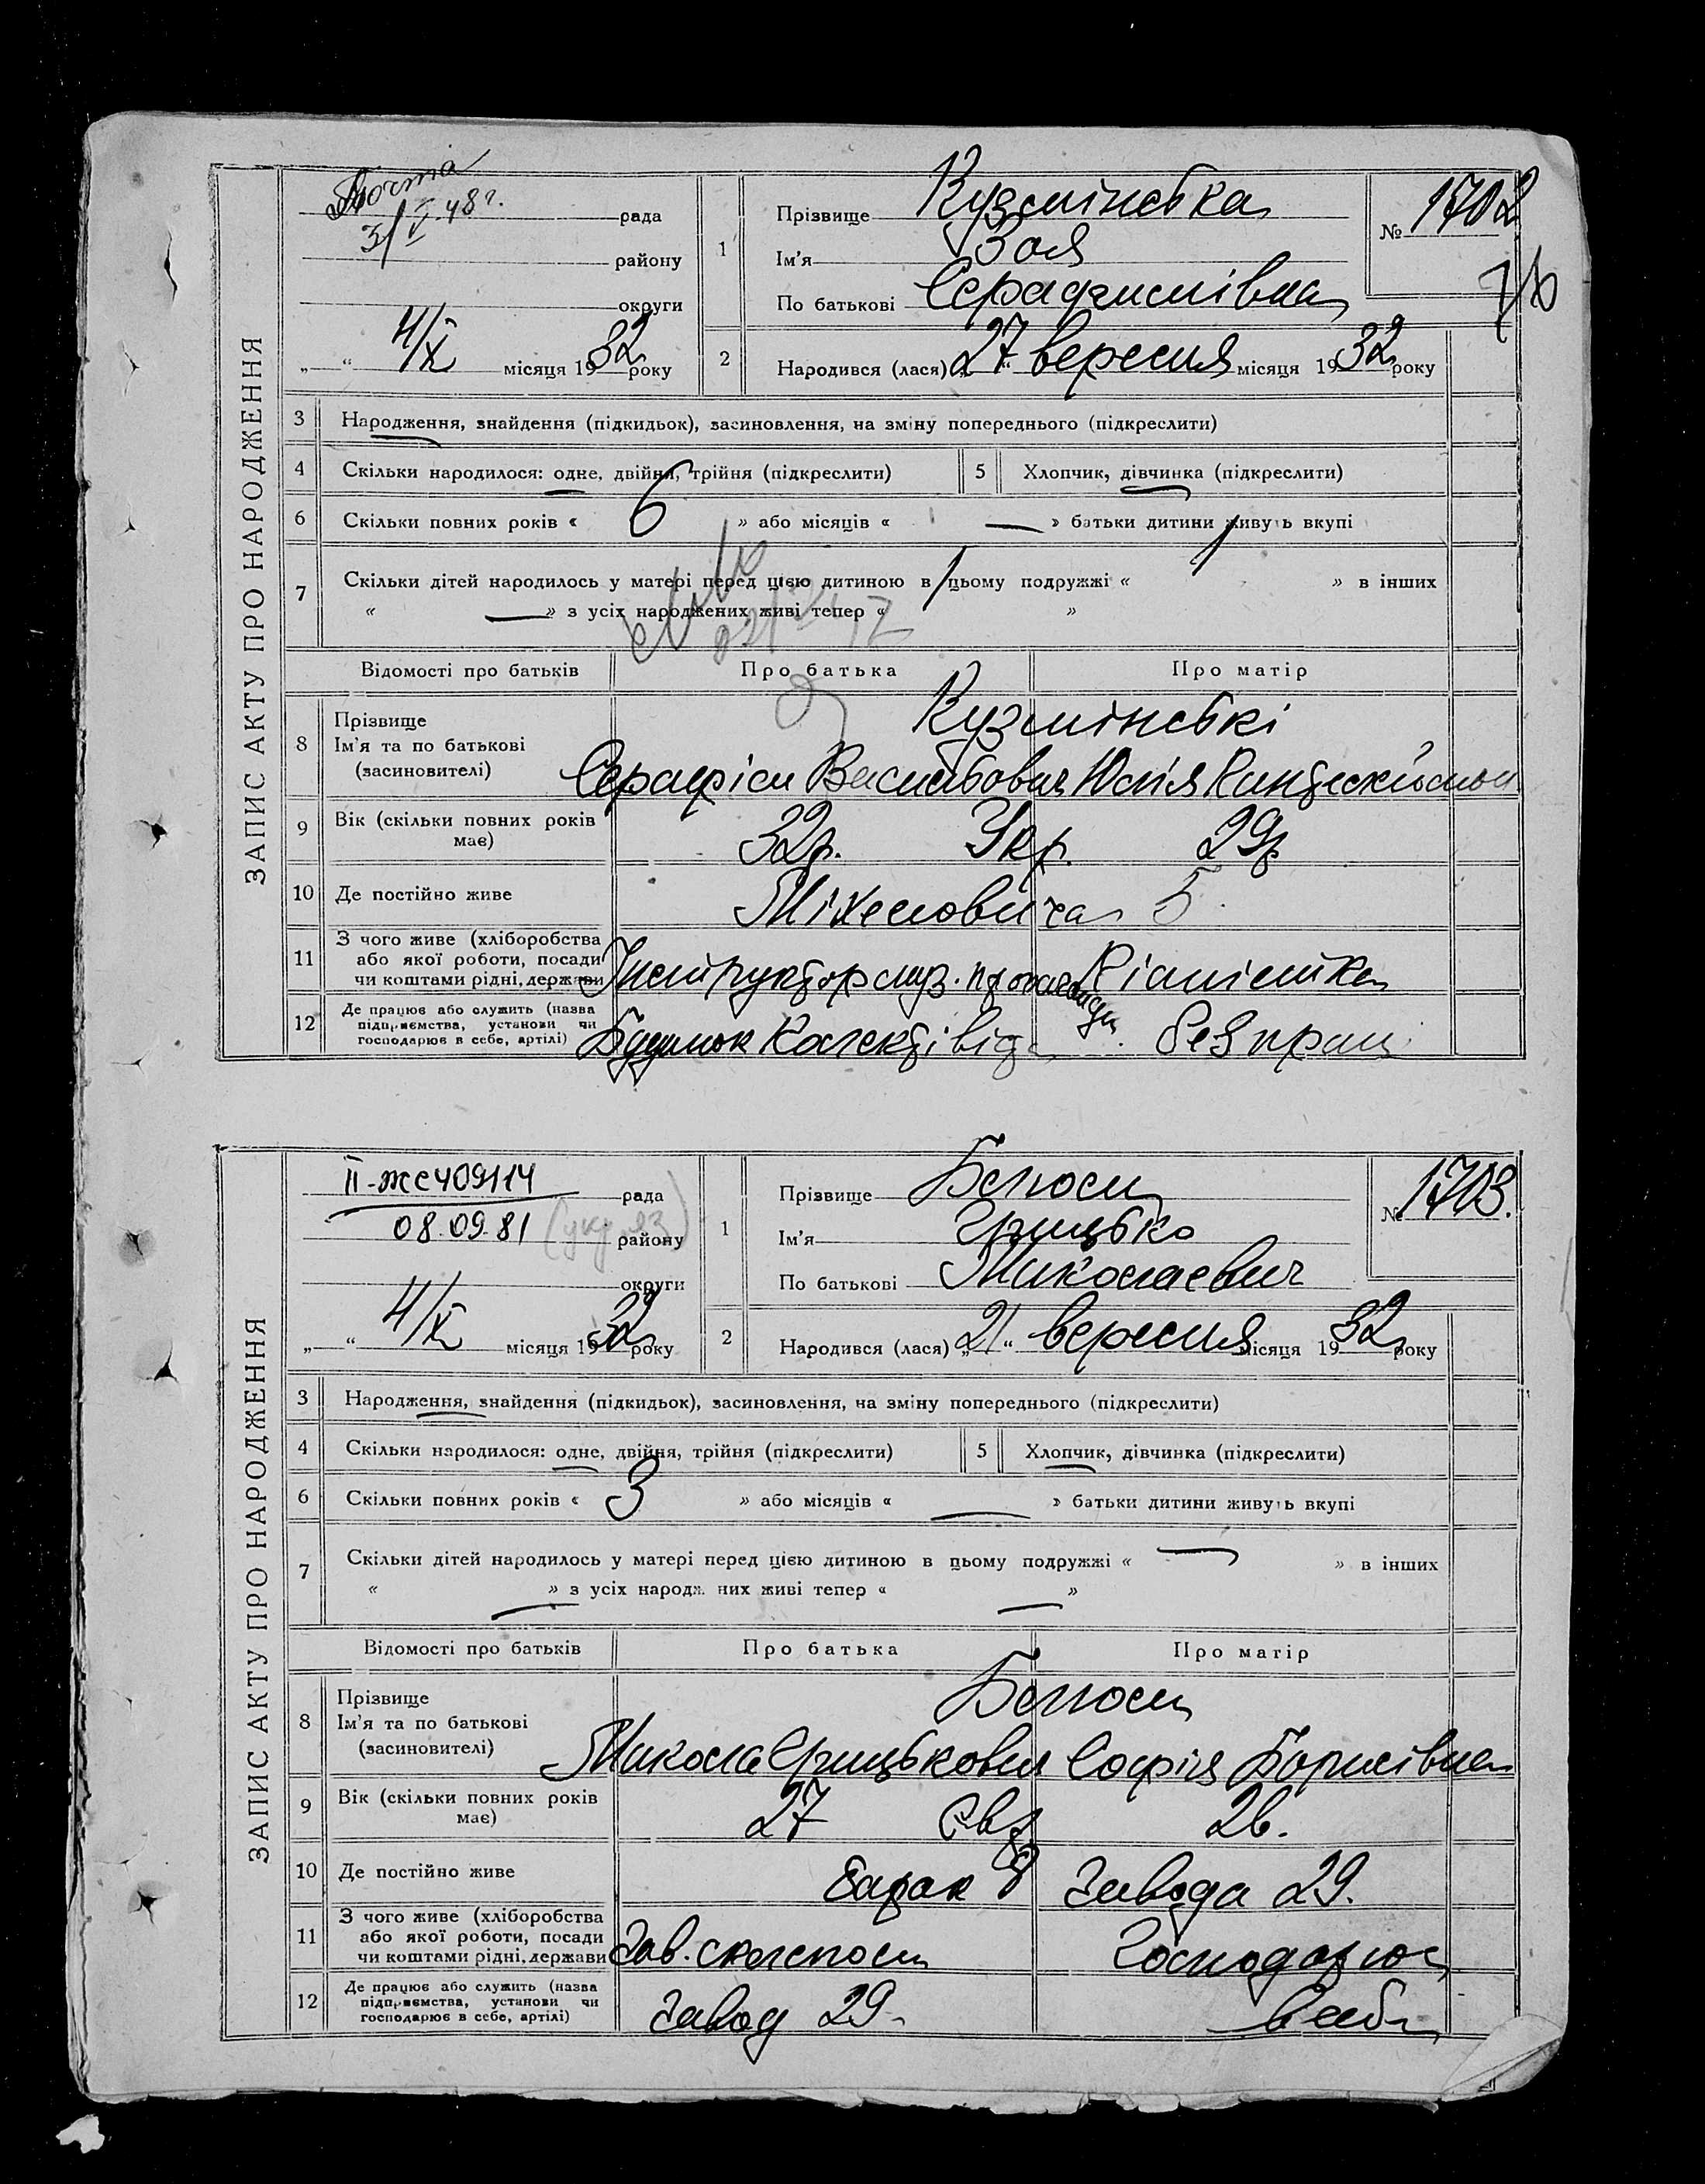 ЗАПИС АКТУ ПРО НАРОДЖЕННЯ
Почта
3/V 48 г.
рада
району
округи
„ “ 4/X місяця 1932 року
1 Прізвище Кузмінська
Ім'я Зоя
По батькові Серафимівна
№ 1702
2 Народився (лася) „27“ вересня місяця 1932 року
3 Народження, знайдення (підкидьок), засиновлення, на зміну попереднього (підкреслити)
4 Скільки народилося: одне, двійня, трійня (підкреслити) 5 Хлопчик, дівчинка (підкреслити)
6 Скільки повних років « 6 » або місяців « — » батьки дитини живуть вкупі
7 Скільки дітей народилось у матері перед цією дитиною в цьому подружжі « 1 » в інших
« — » з усіх народжених живі тепер « 1 »
Відомості про батьків Про батька Про матір
8 Прізвище
Ім'я та по батькові
(засиновителі)
Кузмінські
Серафім Васильович Юлія
9 Вік (скільки повних років має) 32р. Укр. 29р
10 Де постійно живе 5
11 З чого живе (хліборобства або якої роботи, посади чи коштами рідні, держави Інструктор муз. Піаністка
12 Де працює або служить (назва підприємства, установи чи господарює в себе, артілі) Будинок без праці
ЗАПИС АКТУ ПРО НАРОДЖЕННЯ
II-ЖС 409114
рада
08.09.81
району
округи
„ “ 4/X місяця 1932 року
1 Прізвище Белоус
Ім'я Грицько
По батькові Миколаевич
№ 1703.
2 Народився (лася) „21“ вересня місяця 1932 року
3 Народження, знайдення (підкидьок), засиновлення, на зміну попереднього (підкреслити)
4 Скільки народилося: одне, двійня, трійня (підкреслити) 5 Хлопчик, дівчинка (підкреслити)
6 Скільки повних років « 3 » або місяців « — » батьки дитини живуть вкупі
7 Скільки дітей народилось у матері перед цією дитиною в цьому подружжі « — » в інших
« — » з усіх народж них живі тепер « — »
Відомості про батьків Про батька Про матір
8 Прізвище
Ім'я та по батькові
(засиновителі)
Белоус
Микола Грицькович Софія Борисівна
9 Вік (скільки повних років має) 27 Євр 26.
10 Де постійно живе барак 8 Завода 29.
11 З чого живе (хліборобства або якої роботи, посади чи коштами рідні, держави Зав. Господарює
12 Де працює або служить (назва підприємства, установи чи господарює в себе, артілі) Завод 29. в себе